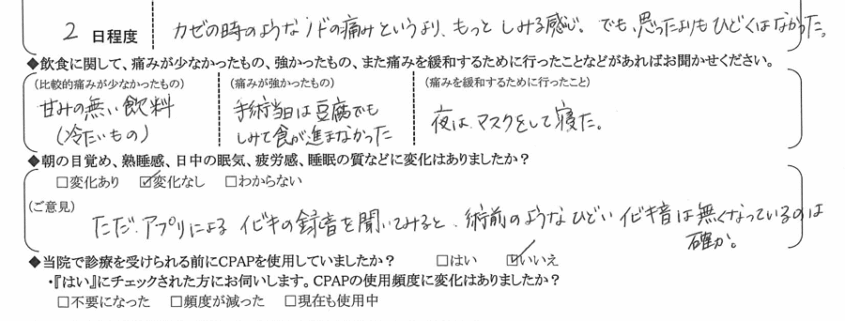 2 日程度 カゼの時のようなノドの痛みというより、もっと しみる感じ。でも、思ったよりもひどくはなかった。
◆飲食に関して、痛みが少なかったもの、強かったもの、また痛みを緩和するために行ったことなどがあればお聞かせください。
（比較的痛みが少なかったもの） （痛みが強かったもの） （痛みを緩和するために行ったこと）
甘みの無い飲料 手術当日は豆腐でも 夜は、マスクをして寝た。
（冷たいもの） しみて食が進まなかった
◆朝の目覚め、熟睡感、日中の眠気、疲労感、睡眠の質などに変化はありましたか？
□変化あり ☑変化なし □わからない
（ご意見）
ただ、アプリによる イビキの録音を聞いてみると、術前のようなひどい イビキ音は無くなっているのは
確か。
◆当院で診療を受けられる前にCPAPを使用していましたか？ □はい ☑いいえ
・『はい』にチェックされた方にお伺いします。CPAPの使用頻度に変化はありましたか？
□不要になった □頻度が減った □現在も使用中